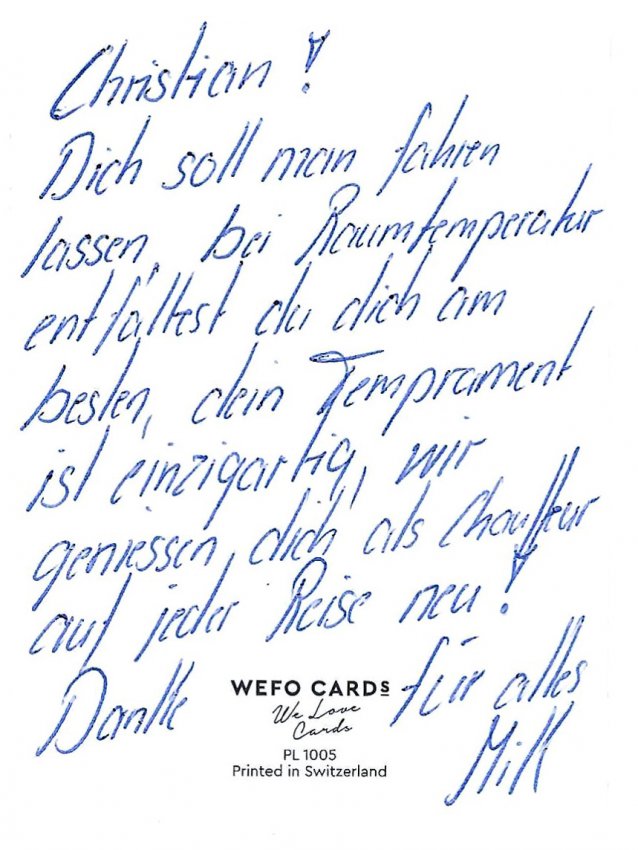 Christian!
Dich soll man fahren
lassen, bei Raumtemperatur
entfaltest du dich am
besten, dein Temprament
ist einzigartig, wir
geniessen dich als Chauffeur
auf jeder Reise neu!
Danke für alles
WEFO CARDS
We Love
Cards
PL 1005
Printed in Switzerland